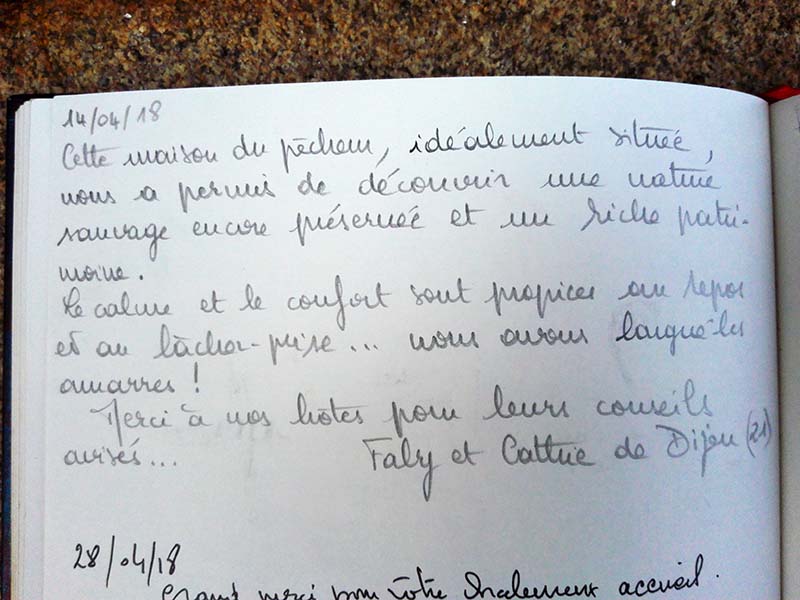 14/04/18
Cette maison du pêcheur, idéalement située,
nous a permis de découvrir une nature
sauvage encore préservée et un riche patri-
moine.
Le calme et le confort sont propices au repos
et au lâcher-prise... nous avons largué les
amarres !
Merci à nos hôtes pour leurs conseils
avisés... Faby et Cathie de Dijon (21)
28/04/18
Grand merci pour votre chaleureux accueil.